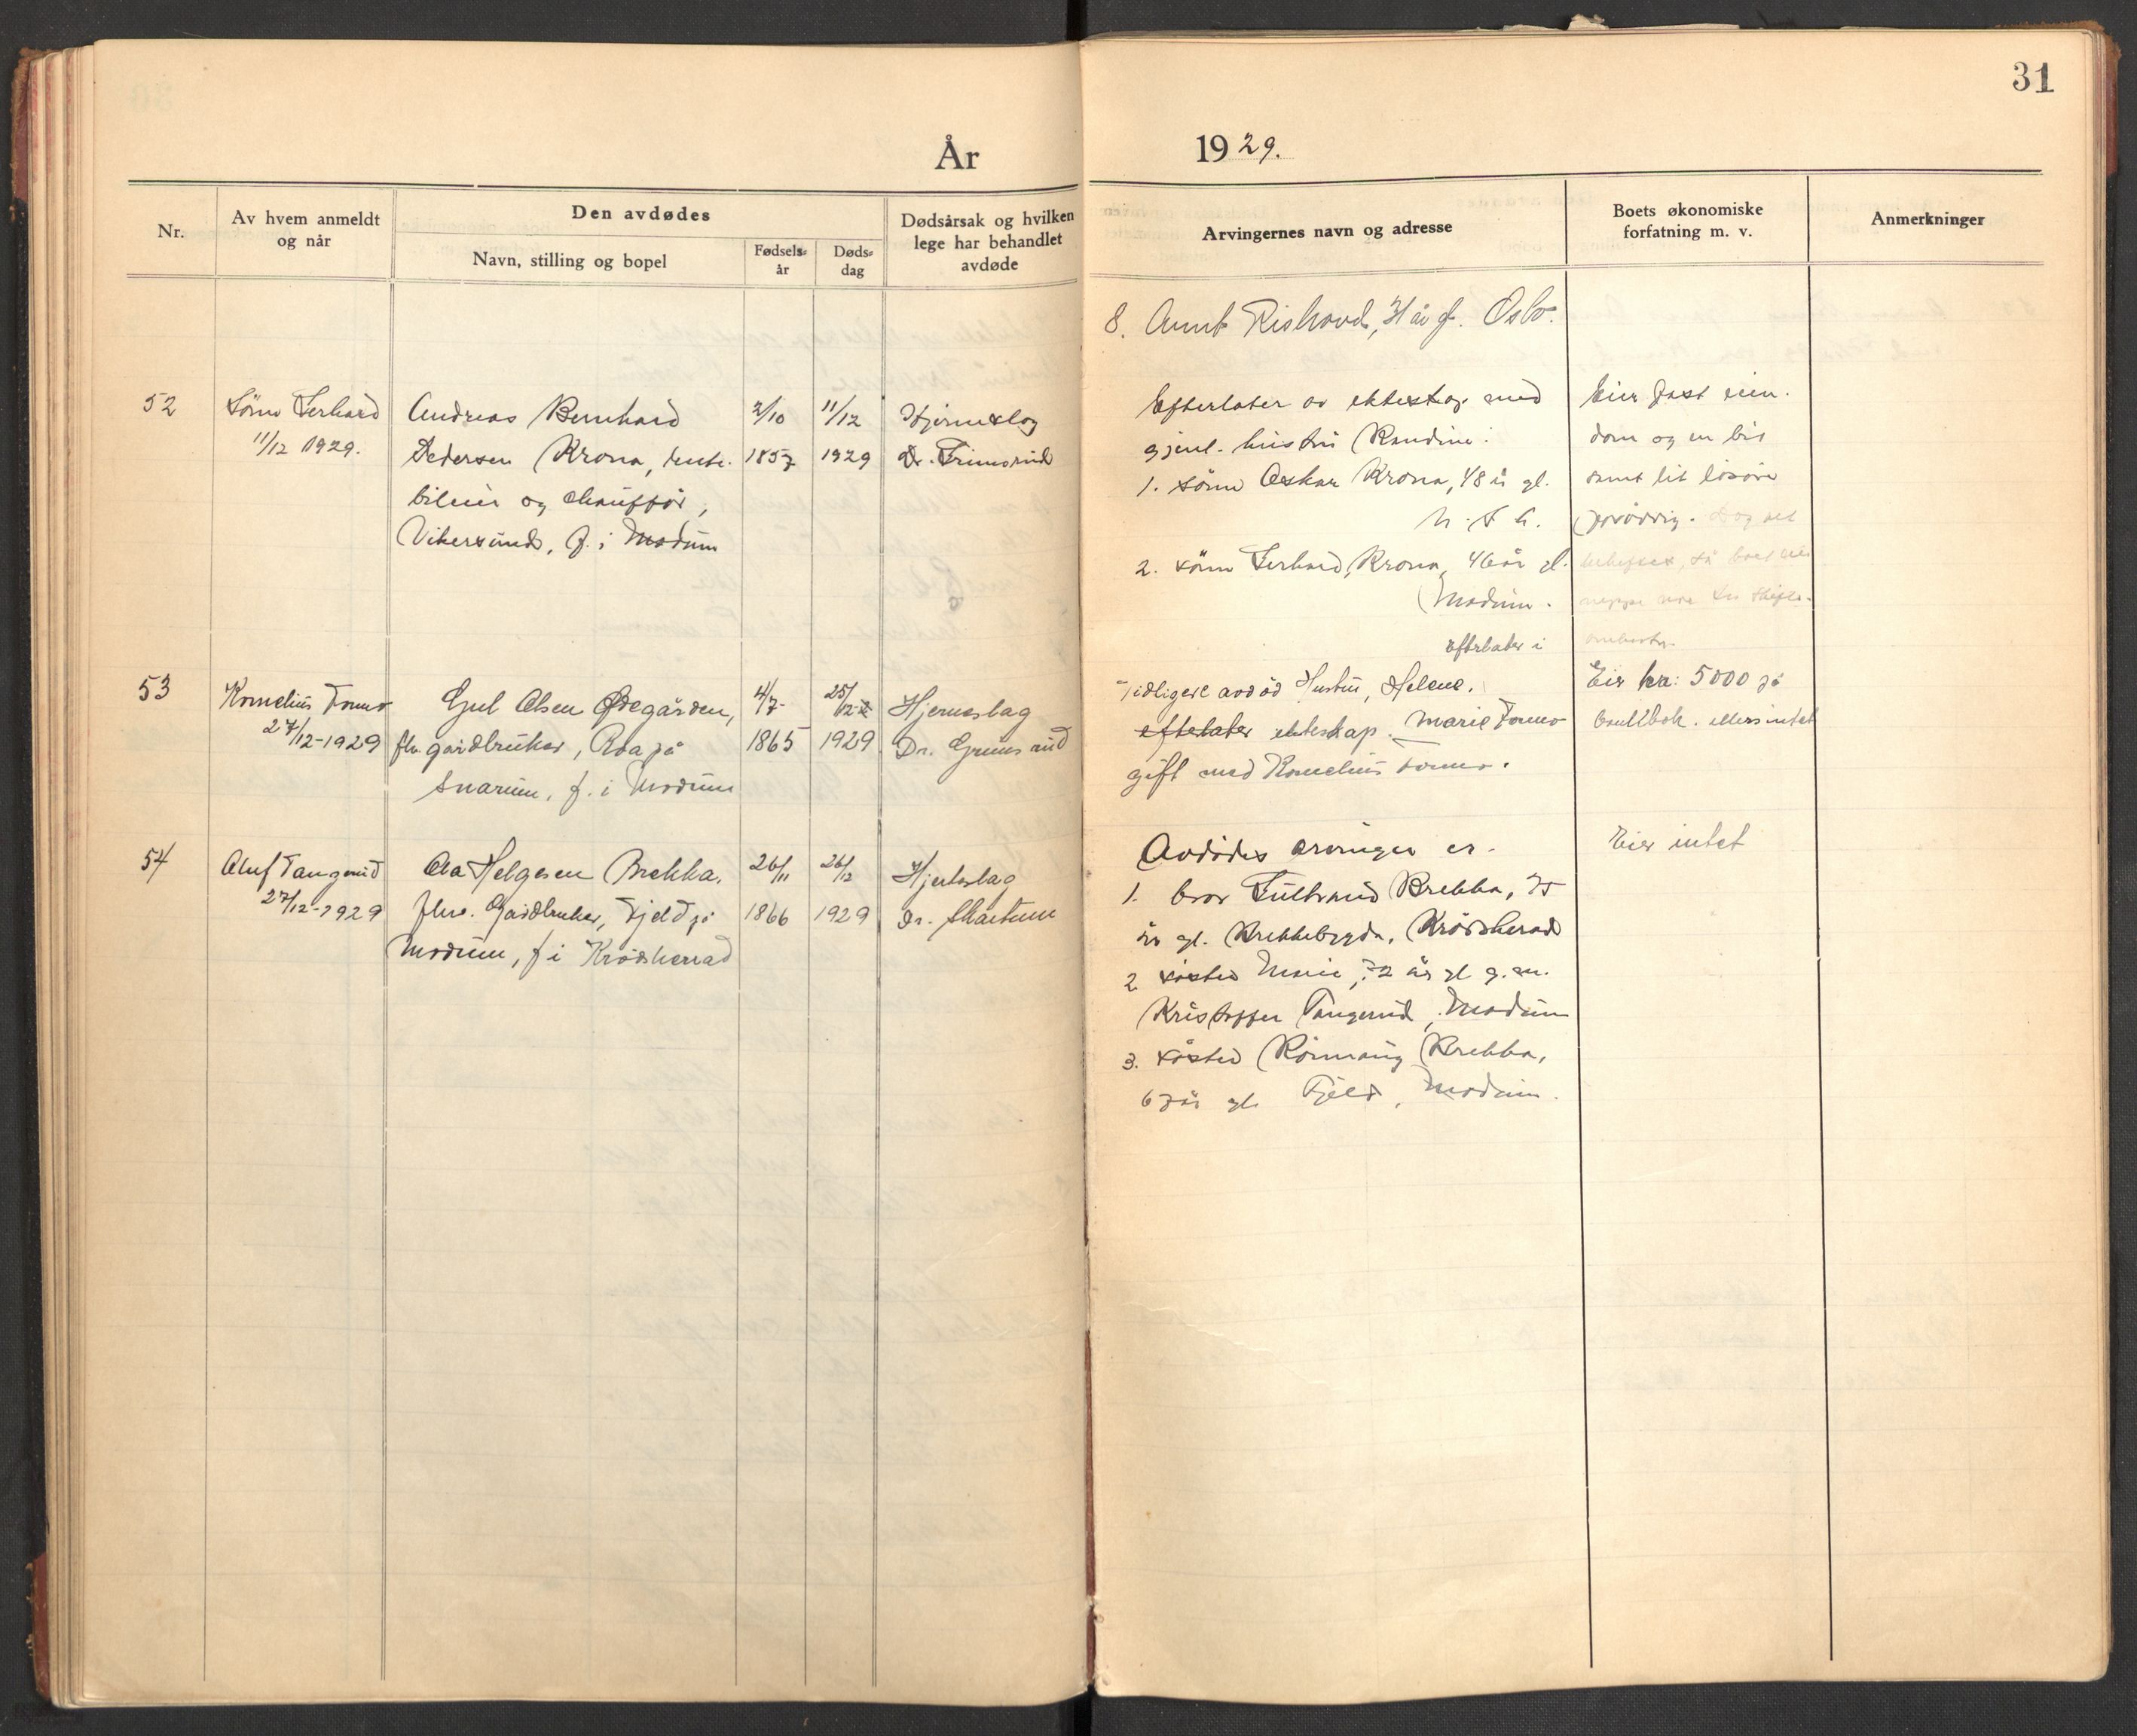 31
År 1929.
Nr.
Av hvem anmeldt
og når
Den avdødes
Navn, stilling og bopel
Fødsels-
år
Døds-
dag
Dødsårsak og hvilken
lege har behandlet
avdøde
Arvingernes navn og adresse
Boets økonomiske
forfatning m. v.
Anmerkninger
8. Rishovd, 31 år gl. Oslo.
52
Sönn Gerhard
11/12 1929.
Andreas Bernhard
Pedersen Krona,
bileier og chauffør,
Vikersund, f. i Modum
2/10
1857
11/12
1929
Hjerneslag
Dr. Grimsrud
Efterlater av ekteskap med
gjenl. hustru Randine:
1. sönn Oskar Krona, 48 år gl.
U. S. A.
2. sönn Gerhard Krona, 46 år gl.
Modum.
Eier fast eien-
dom og en bil
samt lit lösöre
forövrig. Dog
beheftet, så boet
neppe
53
Kornelius Tomo
27/12-1929
Gul Olsen Ødegården,
fhv. gårdbruker, Roa på
Snarum, f. i Modum
4/7-
1865
25/12-
1929
Hjerneslag
Dr. Grimsrud
efterlater i
Tidligere avdöd Hustru, Helene.
efterlater ekteskap. Marie Tomo
gift med Kornelius Tomo.
Eier kr: 5000 på
bankbok. ellers intet
54
Oluf Tangerud
27/12-1929
Ola Helgesen Brekka,
fhv. Gårdbruker, Fjeld på
Modum, f i Krödsherrad
26/11
1866
26/12
1929
Hjerteslag
Dr. Skartum
Avdödes arvinger er.
1. bror Gulbrand Brekka, 75
år gl. Brekkebygda, Krödsherad
2 söster Marie, 72 år gl g. m.
Kristoffer Tangerud, Modum
3. söster Rönnaug Brekka,
67 år gl. Fjeld, Modum.
Eier intet